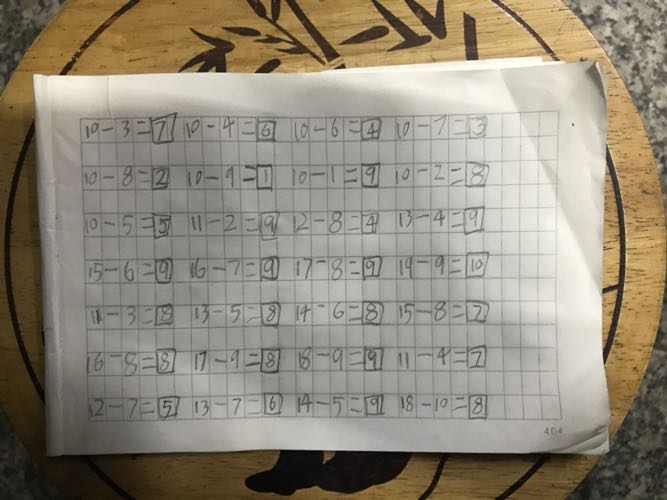 10-3=7 10-4=6 10-6=4 10-7=3
10-8=2 10-9=1 10-1=9 10-2=8
10-5=5 11-2=9 12-8=4 13-4=9
15-6=9 16-7=9 17-8=9 19-9=10
11-3=8 13-5=8 14-6=8 15-8=7
16-8=8 17-9=8 18-9=9 11-4=7
12-7=5 13-7=6 14-5=9 18-10=8
404